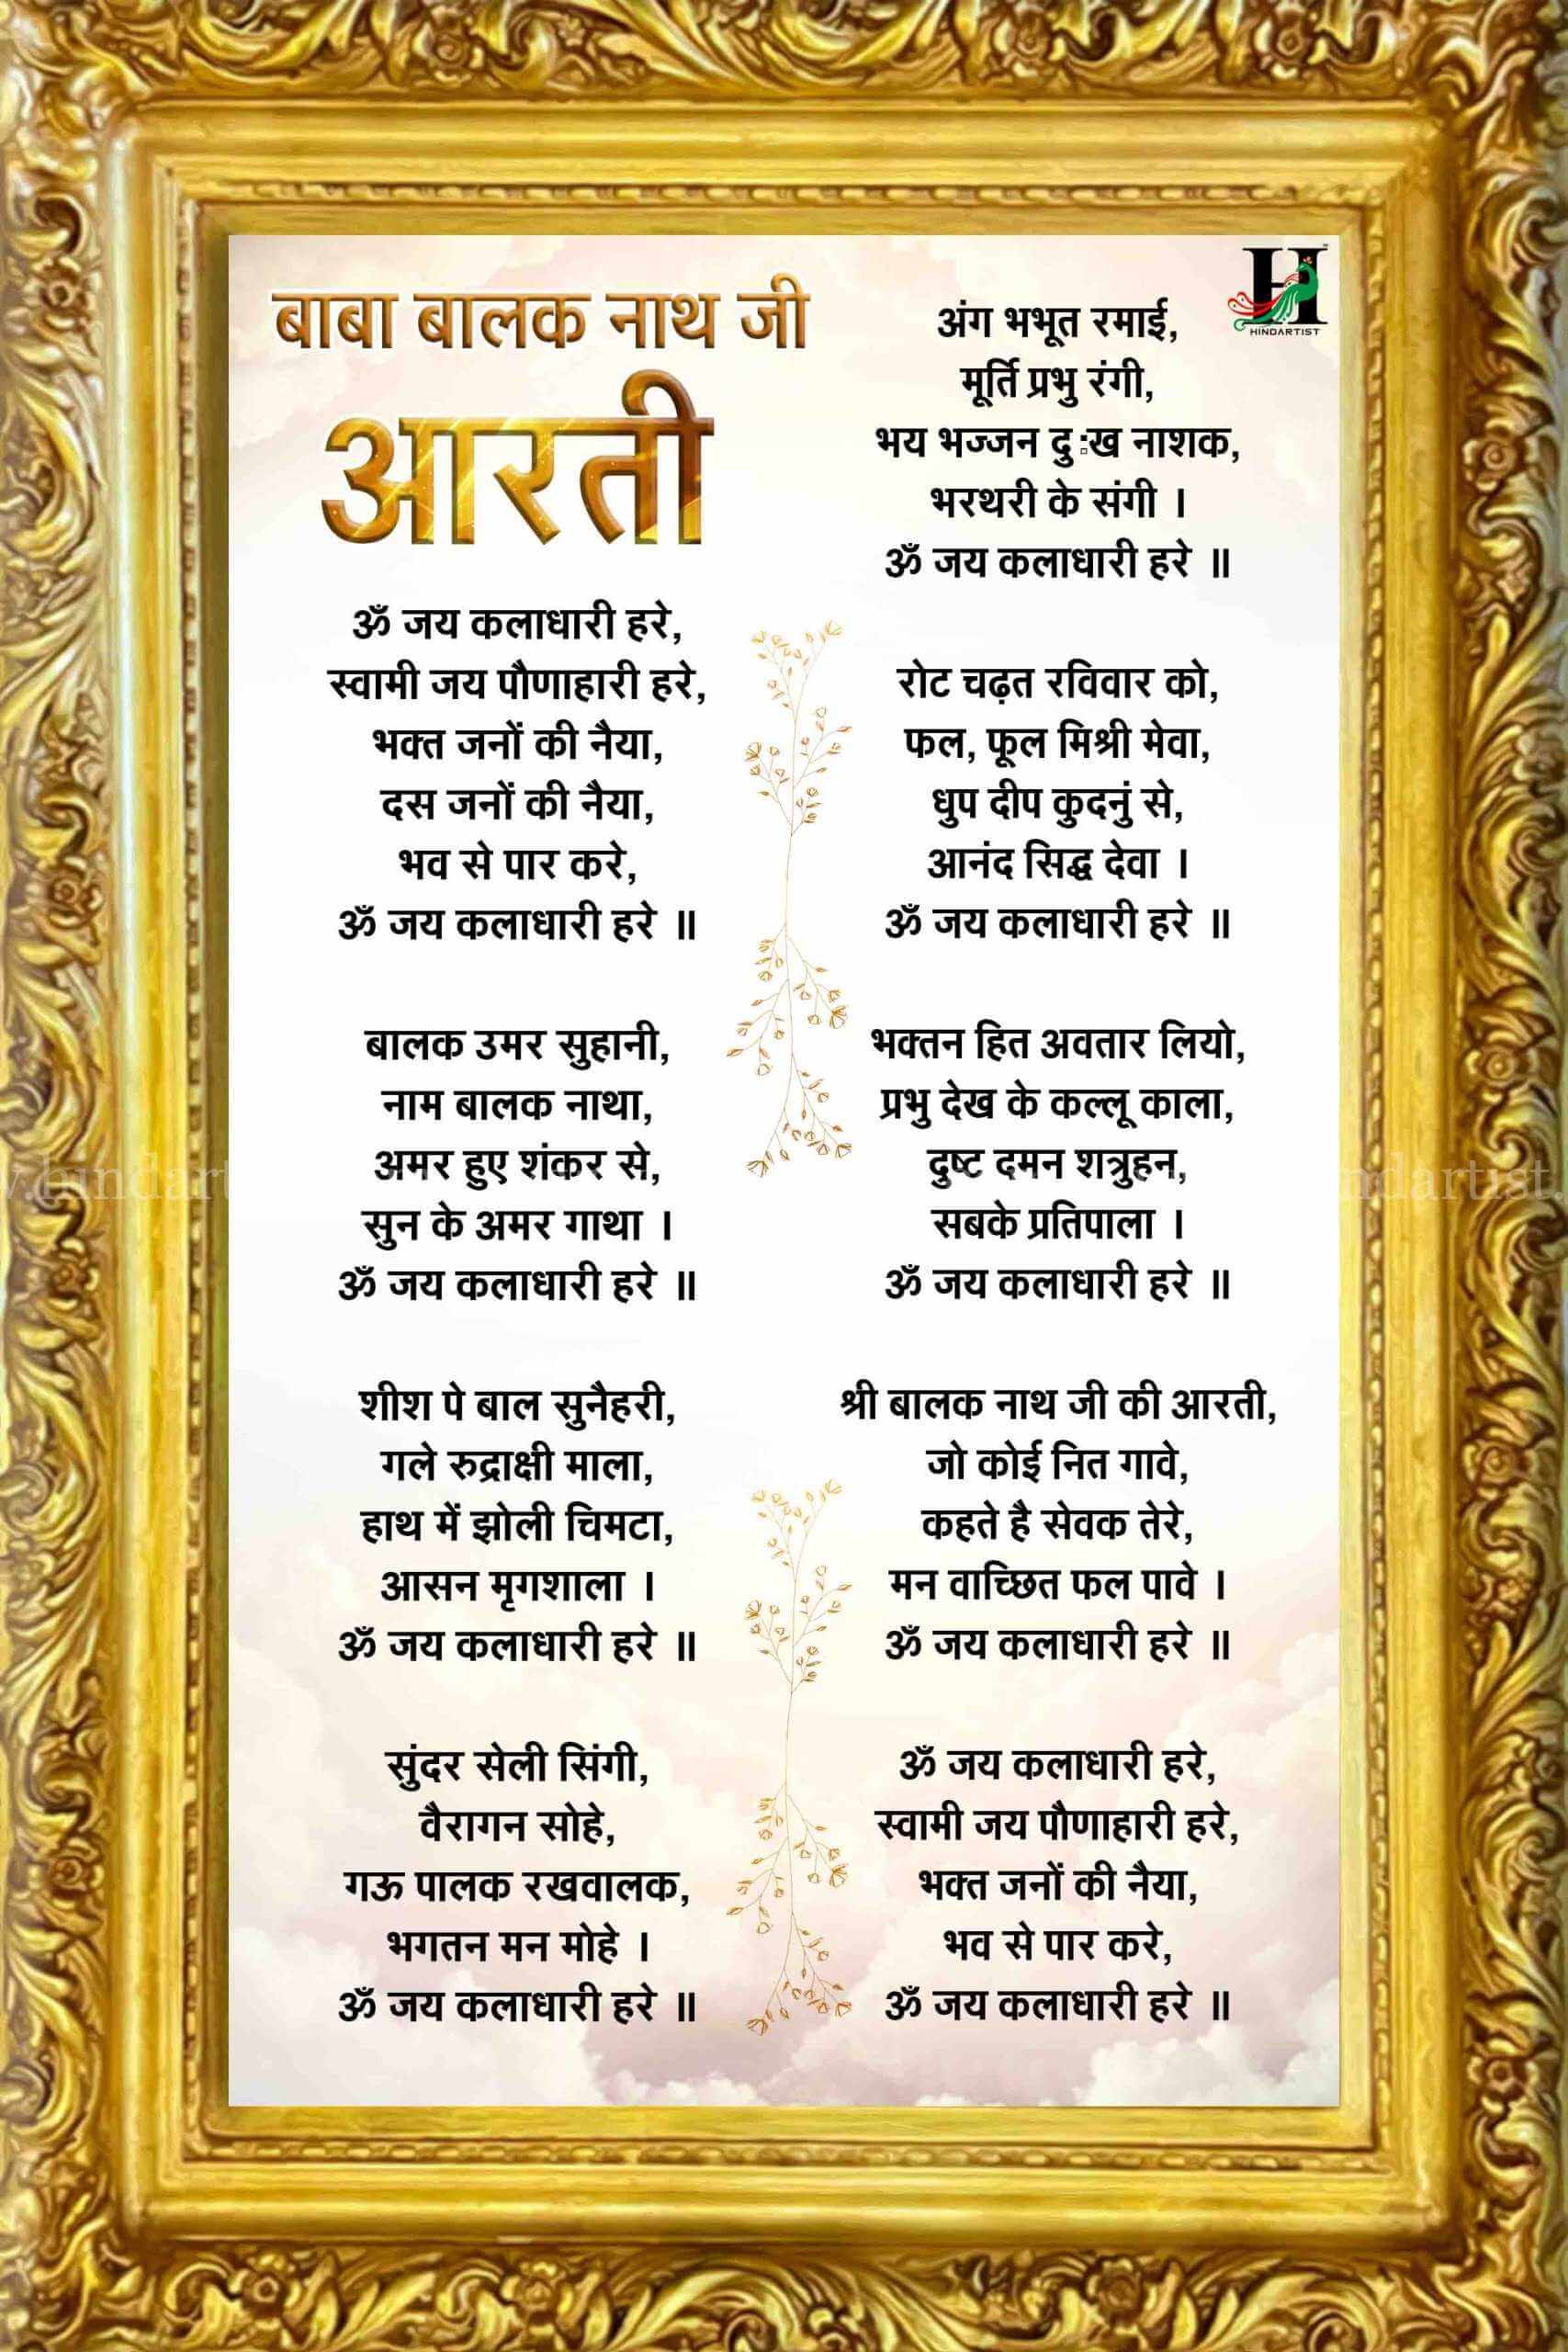 बाबा बालक नाथ जी
आरती
ॐ जय कलाधारी हरे,
स्वामी जय पौणाहारी हरे,
भक्त जनों की नैया,
दस जनों की नैया,
भव से पार करे,
ॐ जय कलाधारी हरे ॥
बालक उमर सुहानी,
नाम बालक नाथा,
अमर हुए शंकर से,
सुन के अमर गाथा ।
ॐ जय कलाधारी हरे ॥
शीश पे बाल सुनैहरी,
गले रुद्राक्षी माला,
हाथ में झोली चिमटा,
आसन मृगशाला ।
ॐ जय कलाधारी हरे ॥
सुंदर सेली सिंगी,
वैरागन सोहे,
गऊ पालक रखवालक,
भगतन मन मोहे ।
ॐ जय कलाधारी हरे ॥
अंग भभूत रमाई,
मूर्ति प्रभु रंगी,
भय भज्जन दुःख नाशक,
भरथरी के संगी ।
ॐ जय कलाधारी हरे ॥
रोट चढ़त रविवार को,
फल, फूल मिश्री मेवा,
धुप दीप कुदनुं से,
आनंद सिद्ध देवा ।
ॐ जय कलाधारी हरे ॥
भक्तन हित अवतार लियो,
प्रभु देख के कल्लू काला,
दुष्ट दमन शत्रुहन,
सबके प्रतिपाला ।
ॐ जय कलाधारी हरे ॥
श्री बालक नाथ जी की आरती,
जो कोई नित गावे,
कहते है सेवक तेरे,
मन वाच्छित फल पावे ।
ॐ जय कलाधारी हरे ॥
ॐ जय कलाधारी हरे,
स्वामी जय पौणाहारी हरे,
भक्त जनों की नैया,
भव से पार करे,
ॐ जय कलाधारी हरे ॥
HINDARTIST